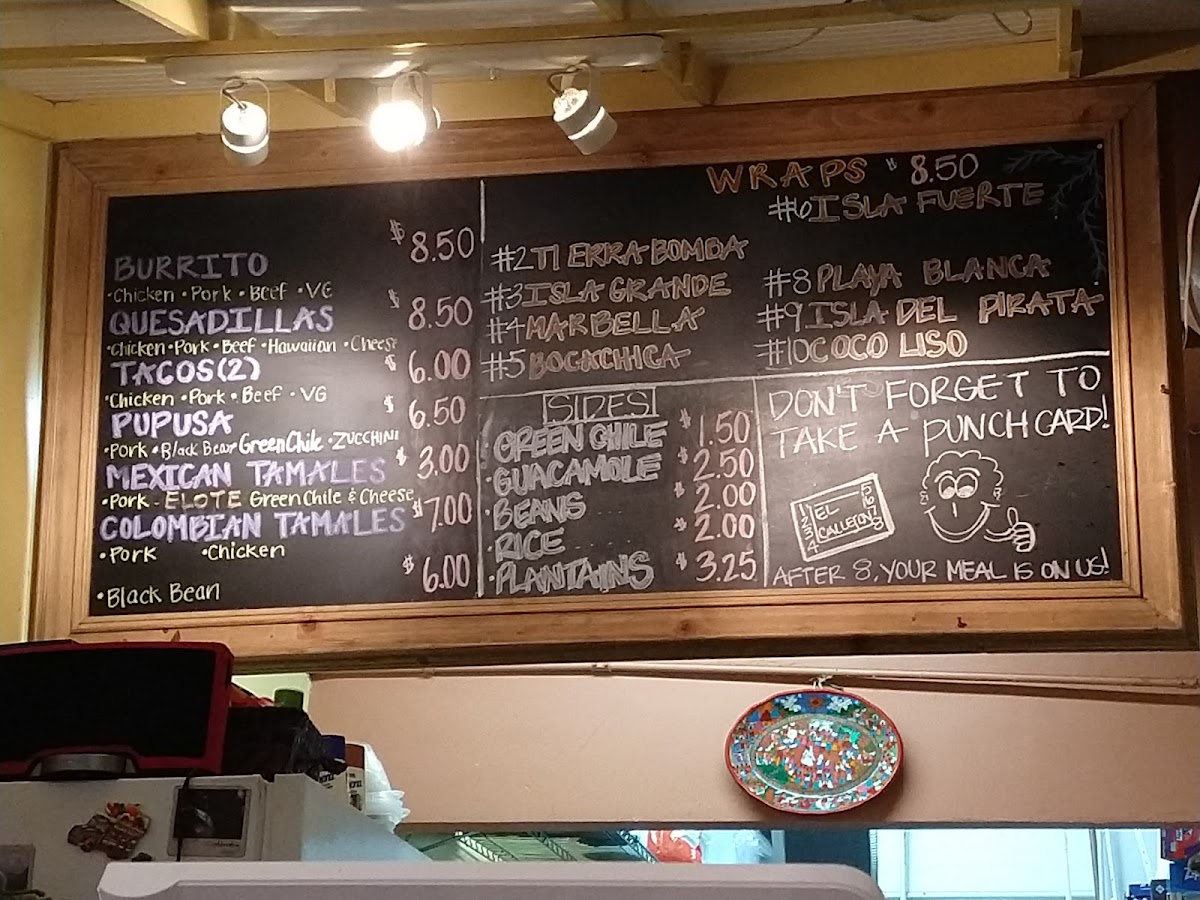 BURRITO $8.50
•Chicken •Pork •Beef •VG
QUESADILLAS $8.50
•Chicken •Pork •Beef •Hawaiian •Cheese
TACOS(2) $6.00
•Chicken •Pork •Beef •VG
PUPUSA $6.50
•Pork •Black Bean GreenChile •ZUCCHINI
MEXICAN TAMALES $3.00
•Pork - ELOTE Green Chile & Cheese
COLOMBIAN TAMALES $7.00
•Pork •Chicken
•Black Bean $6.00
WRAPS $8.50
#2 TIERRA BOMBA
#3 ISLA GRANDE
#4 MARBELLA
#5 BOCACHICA
#6 ISLA FUERTE
#8 PLAYA BLANCA
#9 ISLA DEL PIRATA
#10 COCO LISO
SIDES
•GREEN CHILE $1.50
•GUACAMOLE $2.50
•BEANS $2.00
•RICE $2.00
•PLANTAINS $3.25
DON'T FORGET TO
TAKE A PUNCH CARD!
1 2 3 4 EL CALLEJON 5 6 7 8
AFTER 8, YOUR MEAL IS ON US!